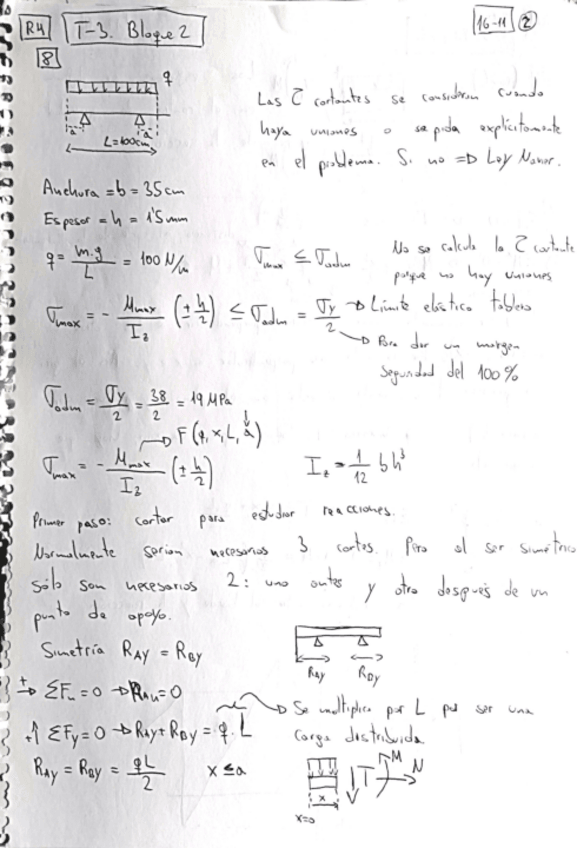 R4 T-3. Bloque 2 16-11 2
8
q
a a
L=100cm
Las τ cortantes se consideran cuando
haya uniones o se pida explícitamente
en el problema. Si no => Ley Navier.
Anchura = b = 35 cm
Espesor = h = 1'5 mm
q = m·g / L = 100 N/m
σmax ≤ σadm
No se calcula la τ cortante
porque no hay uniones
σmax = - Mmax / Iz (± h/2) ≤ σadm = σy / 2 → Límite elástico tablero
→ Para dar un margen
Seguridad del 100%
σadm = σy / 2 = 38 / 2 = 19 MPa
→ F(q, x, L, a)
σmax = - Mmax / Iz (± h/2)
Iz = 1/12 b h³
Primer paso: cortar para estudiar reacciones.
Normalmente serían necesarios 3 cortes. Pero al ser simétrico
sólo son necesarios 2: uno antes y otro después de un
punto de apoyo.
Simetría RAY = RBY
RAY RBY
+→ ΣFx = 0 → RAx = 0
+↑ ΣFy = 0 → RAY + RBY = q · L
→ Se multiplica por L por ser una
carga distribuida
RAY = RBY = qL / 2 x ≤ a
T M N
x
x=0